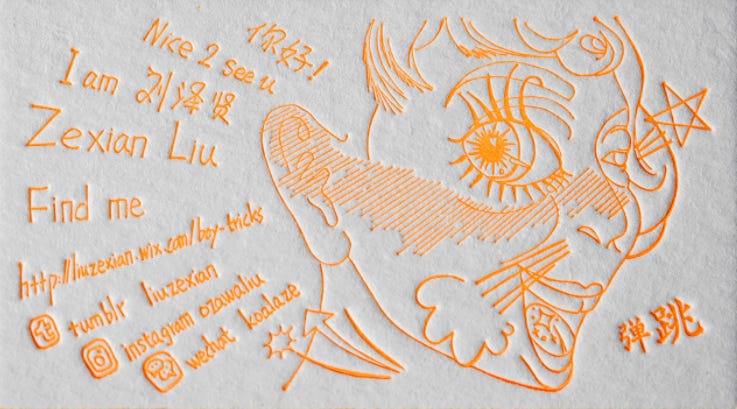 你好!
Nice 2 see u
I am 刘泽贤
Zexian Liu
Find me
http://liuzexian.wix.com/boy-tricks
tumblr liuzexian
instagram ozawaliu
wechat koalaze
弹跳